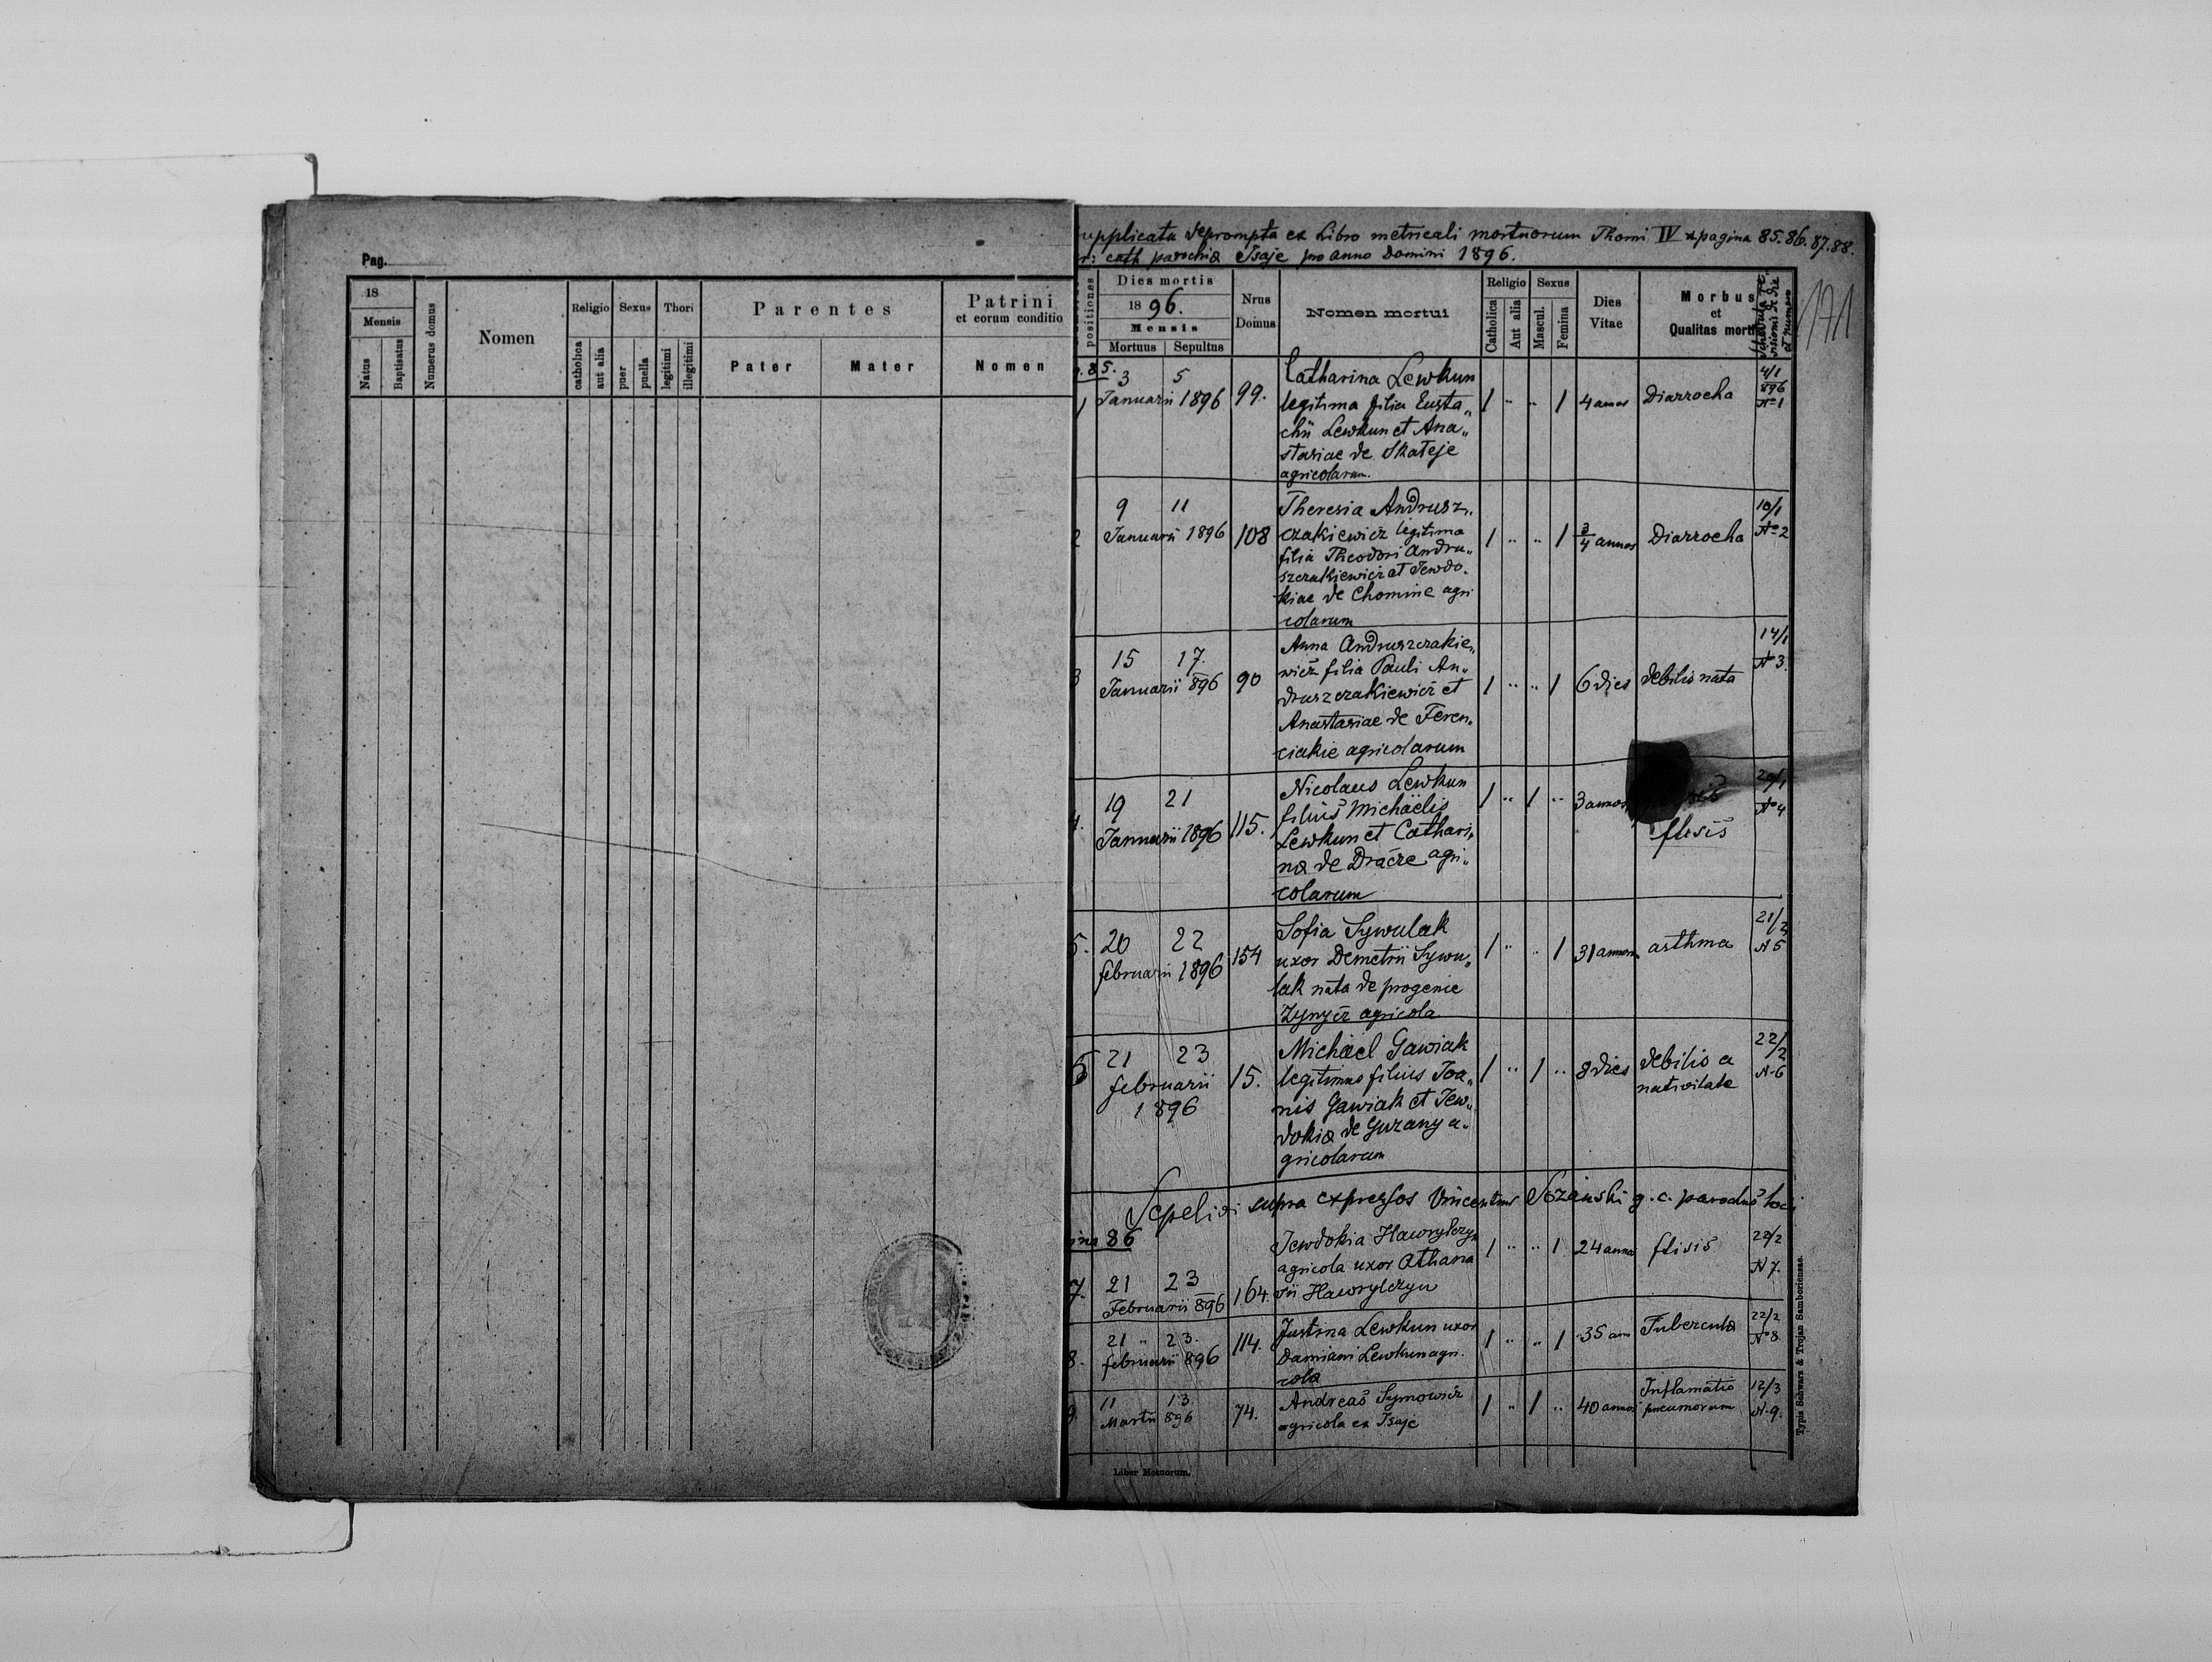 Pag.
18
Mensis
Natus
Baptisatus
Numerus domus
Nomen
Religio
catholica
aut alia
Sexus
puer
puella
Thori
legitimi
illegitimi
Parentes
Pater
Mater
Patrini
et eorum conditio
Nomen
upplicata deprompta ex Libro metricali mortuorum Thomi IV pagina 85.86.87.88.
cath parochiæ Isaje pro anno Domini 1896.
171
positiones
Dies mortis
18 96.
Mensis
Mortuus Sepultus
Nrus
Domus
Nomen mortui
Religio
Catholica
Aut alia
Sexus
Mascul.
Femina
Dies
Vitae
Morbus
et
Qualitas mortis
de die
et numero
85.
1 3 5 Januarii 1896 99.
Catharina Lewkun
legitima filia Eusta„
chii Lewkun et Ana„
stasiae de Skateje
agricolarum.
1 " " 1 4 annos Diarrocha 4/1 896 No 1
2 9 11 Januarii 1896 108
Theresia Andrusz„
czakiewicz legitima
filia Theodori Andru„
szczakiewicz et Jewdo„
kiae de Chomine agri
colarum
1 " " 1 3/4 annos Diarrocha 10/1 No 2
3 15 17. Januarii 896 90
Anna Andruszczakie„
wicz filia Pauli An„
druszczakiewicz et
Anastasiae de Feren„
ciakie agricolarum
1 " " 1 6 dies debilis nata 14/1 No 3.
4. 19 21 Januarii 1896 115.
Nicolaus Lewkun
filius Michaëlis
Lewkun et Cathari„
næ de Dracze agri„
colarum
1 " 1 " 3 annos
ftisis
20/1 No 4
5. 20 22 februarii 1896 154
Sofia Sywulak
uxor Demetrii Sywu„
lak nata de progenie
Zynycz agricola
1 " " 1 31 annor asthma 21/2 N 5
6 21 23 februarii 1896 15.
Michaël Gawiak
legitimus filius Joa„
nis Gawiak et Jew„
dokiæ de Guzany a„
gricolarum
1 " 1 " 8 dies debilis a
nativitate 22/2 N. 6
Sepelivi supra expressos Vincentius Sozański g. c. parochus loci
ina 86
7. 21 23 Februarii 896 164.
Jewdokia Hawrylczyn
agricola uxor Athana
sii Hawrylczyn
1 " " 1 24 annos ftisis 22/2 N 7.
8. 21 " 23. februarii 896 114.
Justina Lewkun uxor
Damiani Lewkun agri„
cola
1 " " 1 35 ann Tubercula 22/2 No 8
9 11 13. Martii 896 74.
Andreas Symowicz
agricola ex Isaje
1 " 1 " 40 annos Inflamatio
pneumorum 12/3 N. 9.
Liber Motuorum.
Typis Schwarz & Trojan Samboriensae